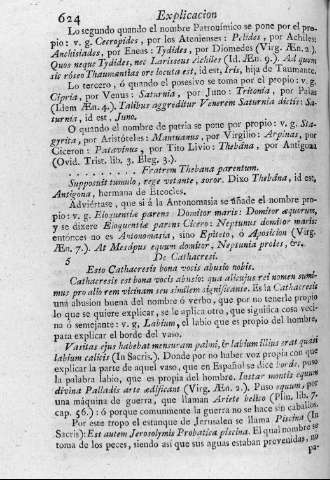 624 Explicacion
Lo segundo quando el nombre Patronímico se pone por el pro-
pio: v. g. Cecropides, por los Atenienses: Pelides, por Achiles:
Anchisiades, por Eneas: Tydides, por Diomedes (Virg. Æn. 2.).
Quos neque Tydides, nec Larisseus Achiles (Id. Æn. 9.). Ad quem
sis róseo Thaumantias ore locuta est, id est, Iris, hija de Taumante.
Lo tercero, ó quando el posesivo se toma por el propio: v. g.
Cipria, por Venus: Saturnia, por Juno: Tritonia, por Palas
(Idem Æn. 4.). Talibus aggreditur Venerem Saturnia dictis: Sa-
turnia, id est, Juno.
O quando el nombre de patria se pone por propio: v. g. Sta-
gyrita, por Aristóteles: Mantuanus, por Virgilio: Arpinas, por
Ciceron: Patavinus, por Tito Livio: Thebána, por Antígona
(Ovid. Trist. lib. 3. Eleg. 3.).
. . . . . . . . Fratrem Thebana parentum.
Supposuit tumulo, rege vetante, soror. Dixo Thebána, id est,
Antígona, hermana de Eteocles.
Adviértase, que si á la Antonomasia se añade el nombre pro-
pio: v. g. Eloquentiæ parens: Domitor maris: Domitor æquorum,
y se dixere Eloquentiæ parens Cicero: Neptunus domitor maris:
entónces no es Antonomasia, sino Epíteto, ó Aposicion (Virg.
Æn. 7.). At Mesápus equum domitor, Neptunia proles, &c.
5 De Cathacresi.
Esto Cathacresis bona vocis abusio nobis.
Cathacresis est bona vocis abusio: qua alicujus rei nomen sumi-
mus pro alio rem vicinam seu similem significante. Es la Cathacresis
una abusion buena del nombre ó verbo, que por no tenerle propio
lo que se quiere explicar, se le aplica otro, que significa cosa veci-
na ó semejante: v. g. Labium, el labio que es propio del hombre,
para explicar el borde del vaso.
Vastitas ejus habebat mensuram palmi, & labium illius erat quasi
labium calicis (In Sacris). Donde por no haber voz propia con que
explicar la parte de aquel vaso, que en Español se dice borde, puso
la palabra labio, que es propia del hombre. Instar montis equum
divina Palladis arte ædificant (Virg. Æn. 2.). Puso equum, por
una máquina de guerra, que llaman Ariete belico (Plin. lib. 7.
cap. 56.): ó porque comunmente la guerra no se hace sin caballos.
Por este tropo el estanque de Jerusalen se llama Piscina (In
Sacris): Est autem Jerosolymis Probatica piscina. El qual nombre se
toma de los peces, siendo así que sus aguas estaban prevenidas, no
pa-